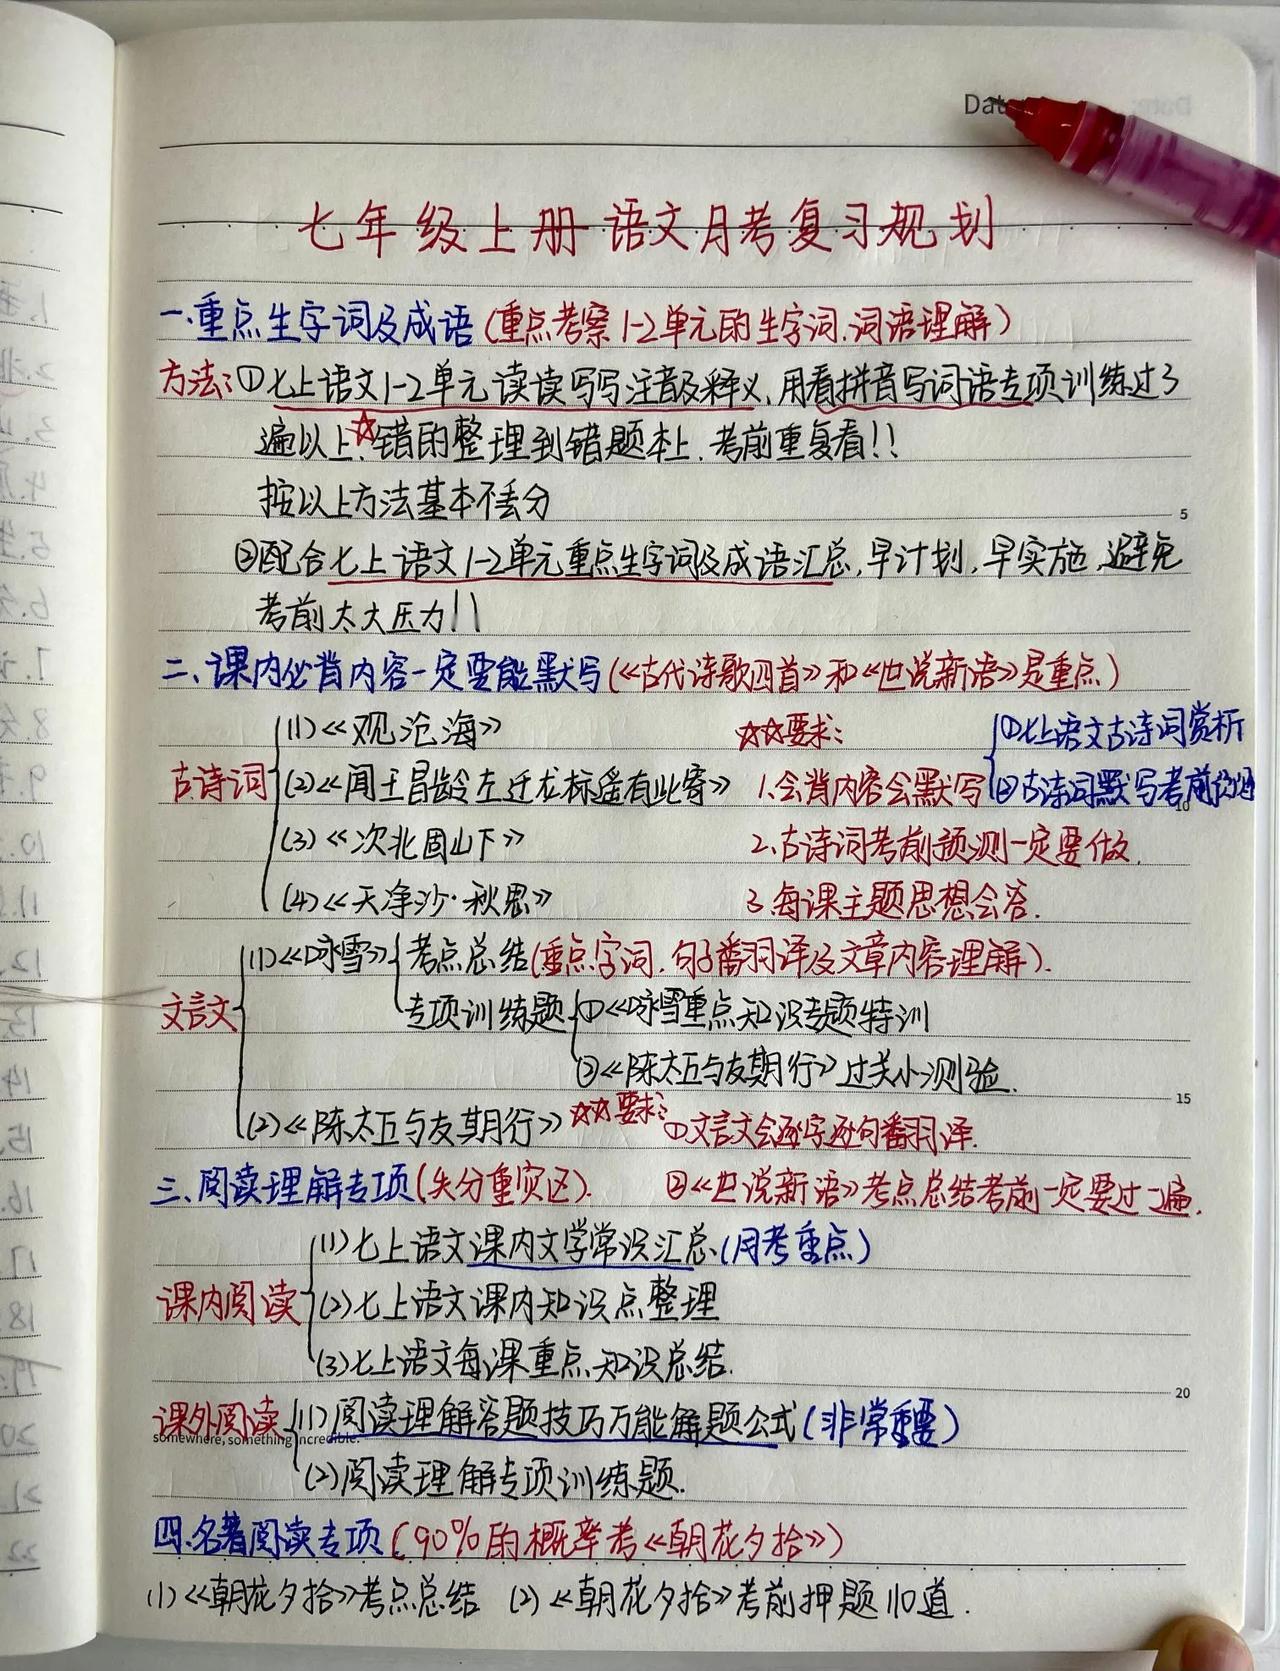 Dat
七年级上册语文月考复习规划
一.重点生字词及成语(重点考察1-2单元的生字词.词语理解)
方法:①七上语文1-2单元读读写写注音及释义,用看拼音写词语专项训练过3
遍以上,☆错的整理到错题本上.考前重复看!!
按以上方法基本不丢分
5
②配合七上语文1-2单元重点生字词及成语汇总,早计划,早实施,避免
考前太大压力!!
二、课内必背内容一定要能默写(《古代诗歌四首》和《世说新语》是重点)
古诗词
(1)《观沧海》
(2)《闻王昌龄左迁龙标遥有此寄》
(3)《次北固山下》
(4)《天净沙·秋思》
☆☆要求:
1.会背内容会默写
①七上语文古诗词赏析
②古诗词默写考前必过
10
2.古诗词考前预测一定要做.
3.每课主题思想会答.
文言文
(1)《咏雪》
考点总结(重点字词.句子翻译及文章内容理解).
专项训练题
①《咏雪重点知识专题特训
②《陈太丘与友期行》过关小测验.
15
(2)《陈太丘与友期行》
☆☆要求:
①文言文会逐字逐句翻译.
②《世说新语》考点总结考前一定要过一遍.
三、阅读理解专项(失分重灾区).
课内阅读
(1)七上语文课内文学常识汇总(月考重点)
(2)七上语文课内知识点整理
(3)七上语文每课重点知识总结.
20
课外阅读
(1)阅读理解答题技巧万能解题公式(非常重要)
somewhere, something incredible.
(2)阅读理解专项训练题.
四.名著阅读专项(90%的概率考《朝花夕拾》)
(1)《朝花夕拾》考点总结 (2)《朝花夕拾》考前押题110道.